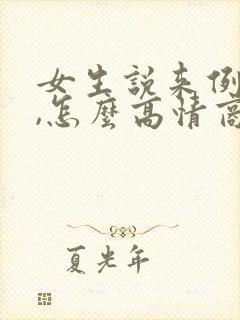 女生説来例
,怎麼高情商
夏光年